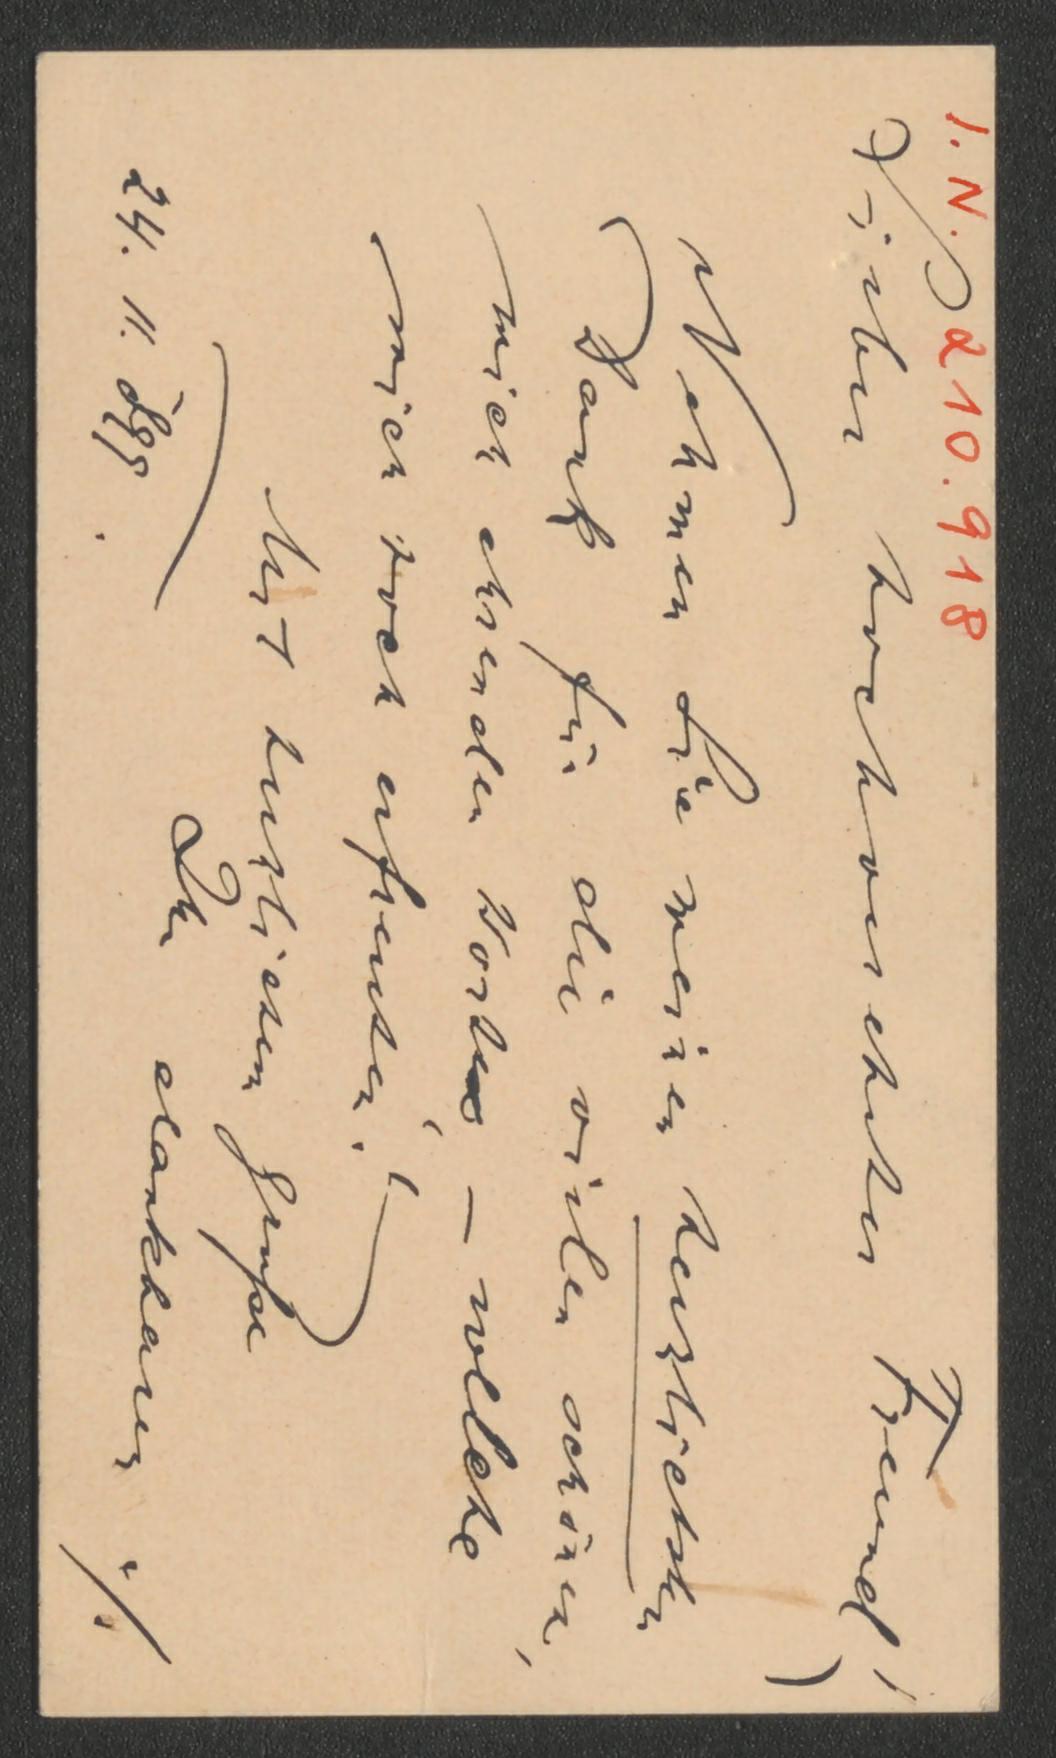 I. N. 210.918
Lieber hochverehrter Freund!
Nehmen Sie meinen herzlichsten
Dank für die vielen schönen,
mich ehrenden Worte – welche
mich hoch erfreuten!
Mit herzlichem Gruße
Ihr dankbarer
24. 11. 899